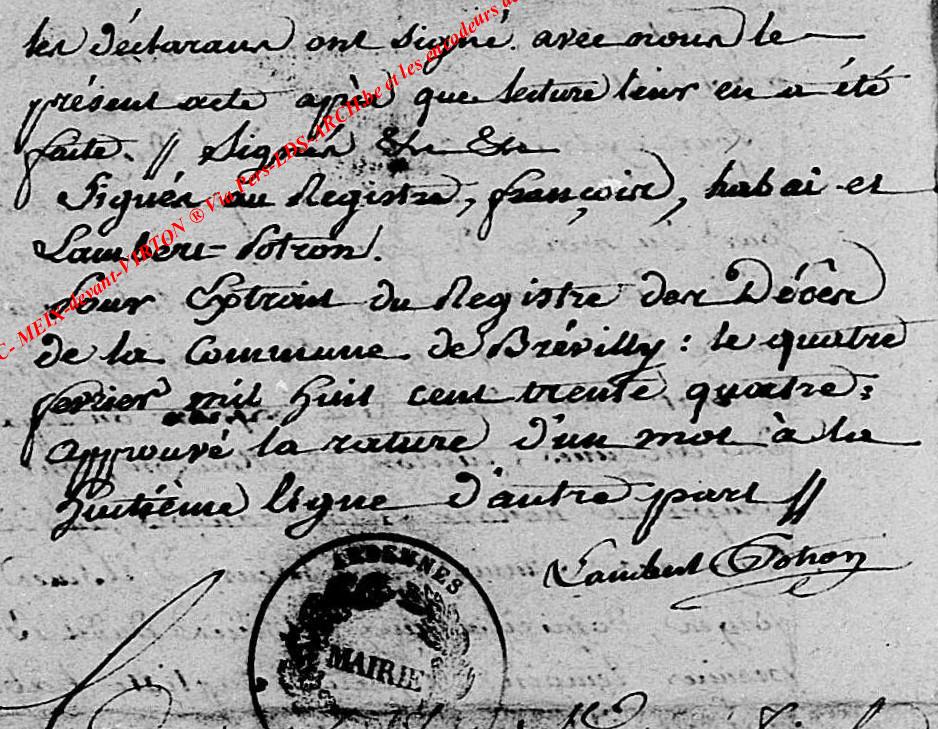 les déclarans ont signé avec nous le
présent acte après que lecture leur en a été
faite. // Signés &r &r
Signés au Registre, françois, habai et
Lambert-Potron.
Pour Extrait du Registre des Décès
de la Commune de Brévilly : le quatre
fevrier mil huit cent trente quatre ;
approuvé la rature d'un mot à la
huitième ligne d'autre part //
Lambert Potron
ARDENNES
MAIRIE
C- MEIX-devant-VIRTON ® Via Pers-LDS-ARCHbe et les encodeurs